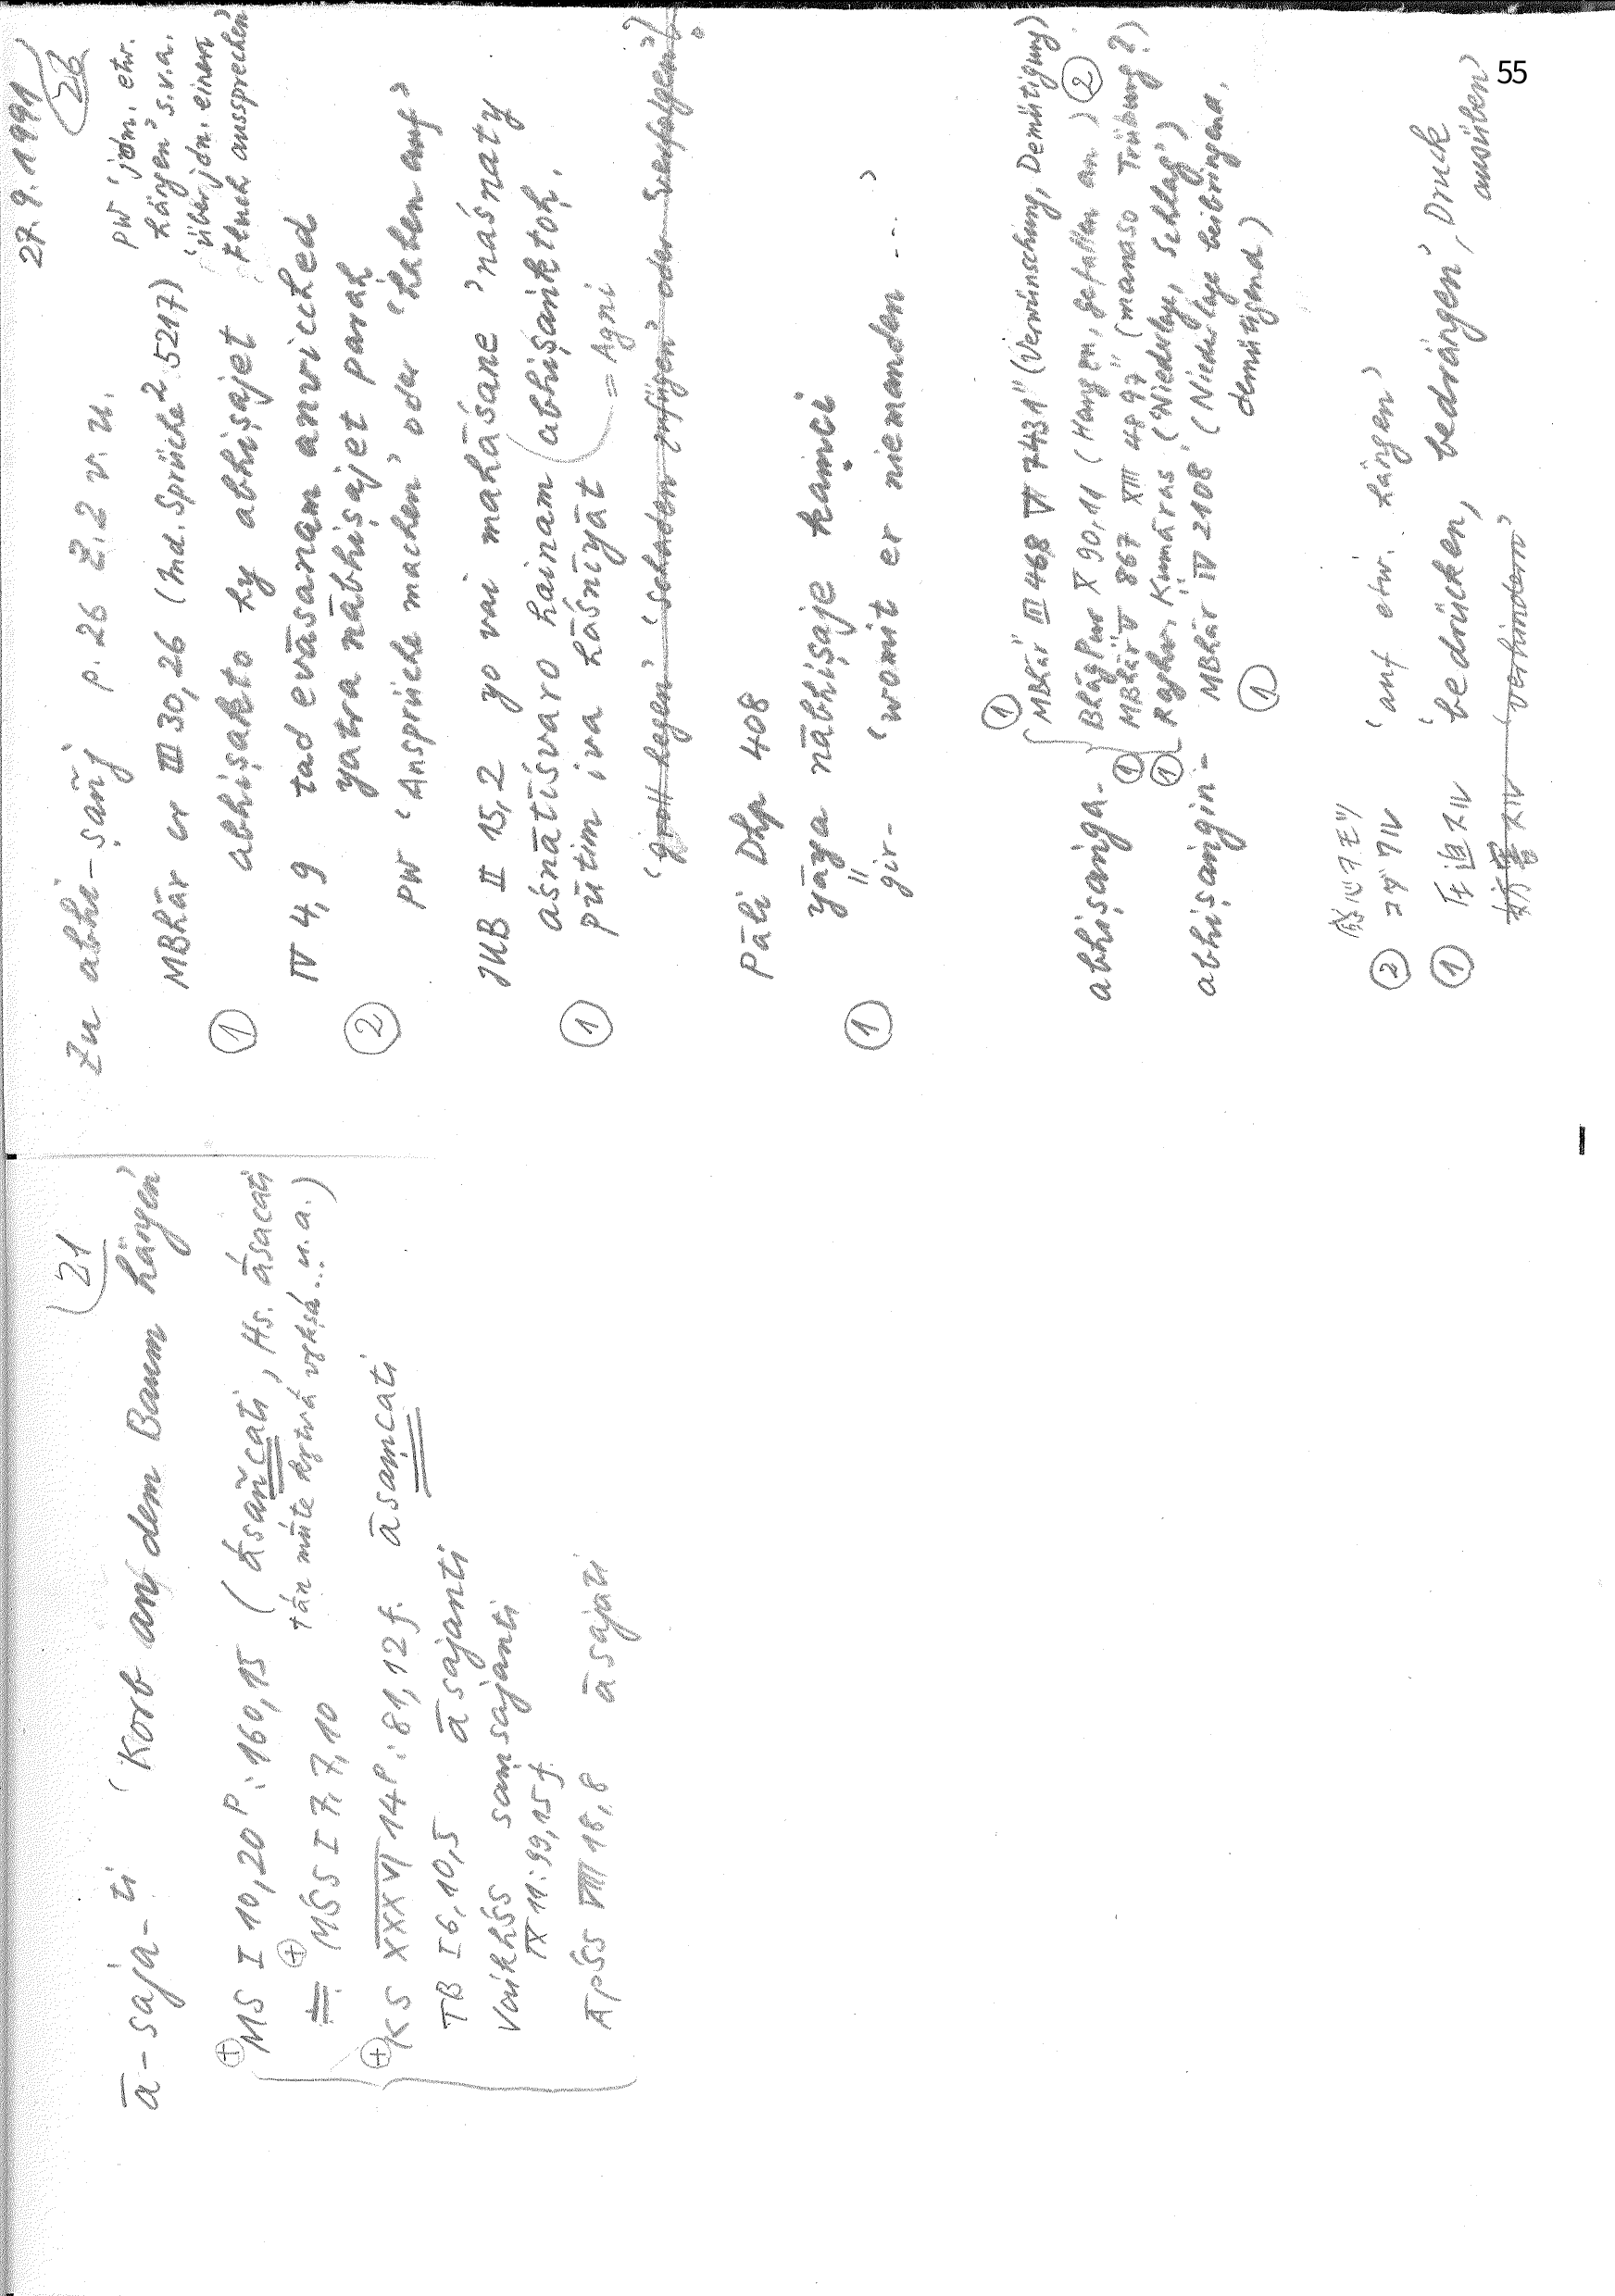 55
21
ā-saja-ti 'Korb an dem Baum hängen'
⊕ MS I 10,20 P: 160,15 (ā́sañcati, Hs. ásacati
≒ ⊕ MŚS I 7,7,10 tán mūte kṛtvā́ vṛkṣá... u.a.)
⊕ KS XXXVI 14 P: 81,12 f. āsaṃcati
TB I 6,10,5 āsajanti
VaikhŚS saṃsajanti
IX 11: 99,15 f.
ĀpŚS VIII 18,8 āsajati
27.9.1991
26
Zu abhi-ṣañj p. 26 Z. 2 v. u.
PW 'jdm. etw.
hängen' s.v.a.
'über jdn. einen
Fluch aussprechen'
MBhār cr III 30,26 (Ind. Sprüche² 5217)
① abhiṣakto hy abhiṣajet
IV 4,9 tad evāsanam anvicched
② yatra nābhiṣajet paraḥ
PW 'Ansprüche machen' oder 'haben auf'
JUB II 15,2 yo vai mahāśane 'naśnaty
aśnātīśvaro hainam abhiṣaṅktoḥ.
① pūtim iva hāśnīyāt = Agni
'groll hegen' 'schaden zufügen' oder 'verfolgen'?
Pāli Dhp 408
yāya nābhiṣaje kaṃci
① gir- 'womit er niemanden ...'
abhiṣaṅga- ① MBhār III 468 VI 7431 (Verwünschung, Demütigung)
BhāgPur X 90,11 (Hangen, gefallen an) ②
① MBhār V 867 XIII 4897 (manaso Trübung?)
① Raghu, Kumāras ('Niederlage, Schlag')
abhiṣaṅgin- MBhār IV 2108 (Niederlage beibringend,
① demütigend)
② コダワル 'auf etw. hängen'
① 圧迫スル 'bedrücken, bedrängen', Druck
ausüben'
妨害スル 'verhindern'